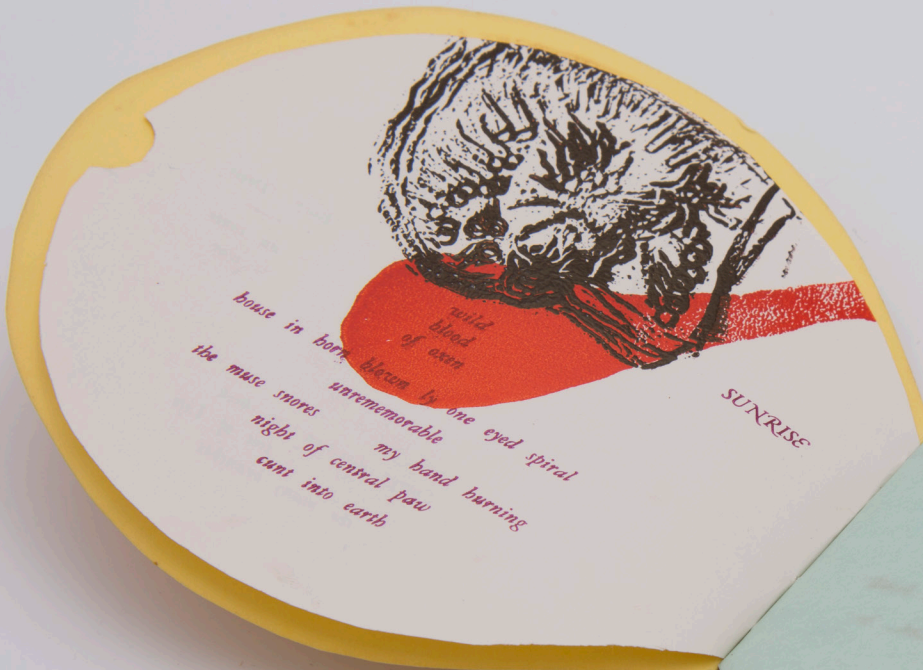 wild
blood
of oxen
house in horn blown by one eyed spiral
unrememorable
the muse snores my hand burning
night of central paw
cunt into earth
SUNRISE